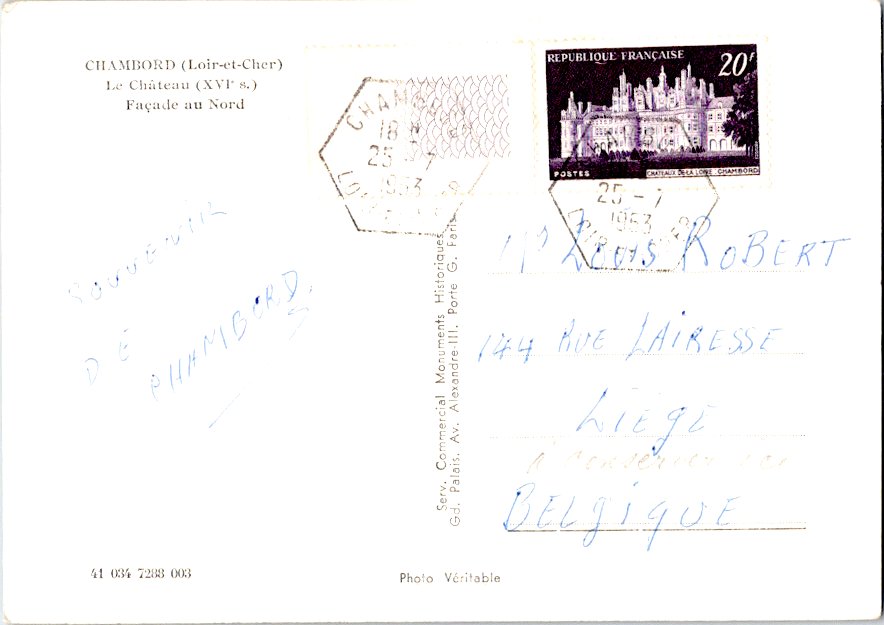 CHAMBORD (Loir-et-Cher)
Le Château (XVIe s.)
Façade au Nord
SOUVENIR
DE
CHAMBORD.
41 034 7288 003
Serv. Commercial Monuments Historiques,
Gd. Palais, Av. Alexandre-III, Porte G. Paris
Photo Véritable
RÉPUBLIQUE FRANÇAISE
20F
POSTES
CHATEAUX DE LA LOIRE : CHAMBORD
CHAMBORD
18
25 - 7
1953
25 - 7
1953
Louis ROBERT
144 RUE LAIRESSE
LIÈGE
BELGIQUE